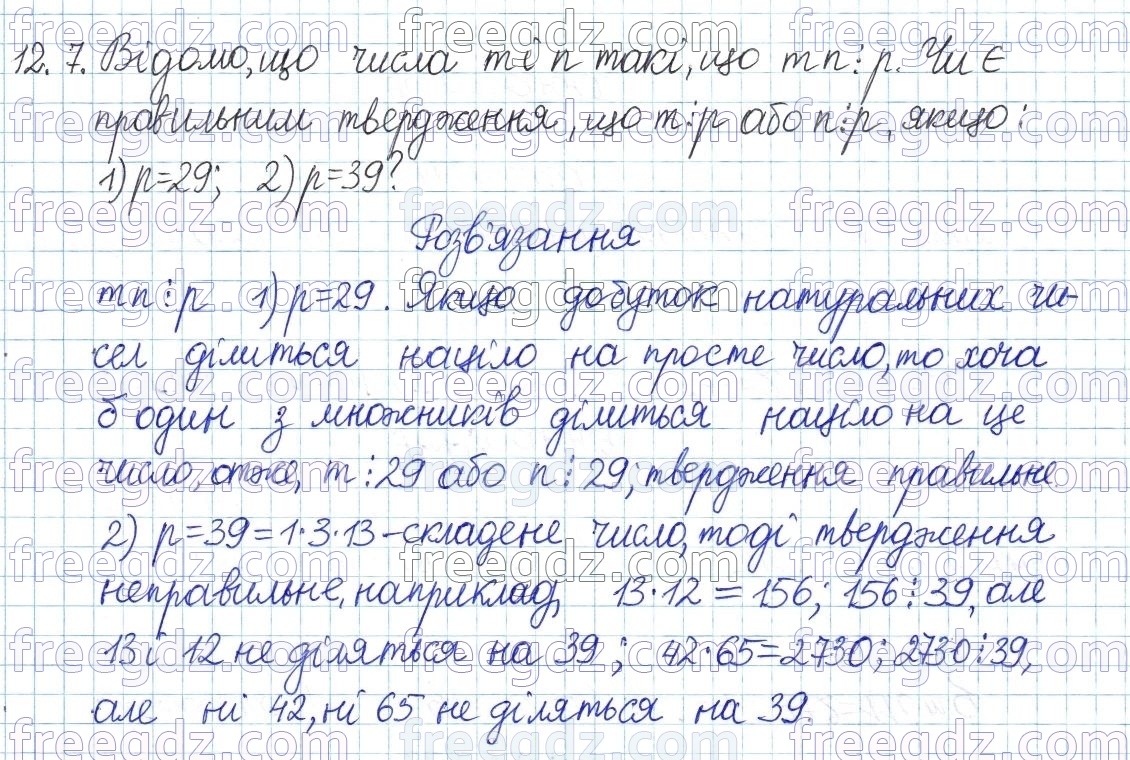 12.7. Відомо, що числа m і n такі, що mn⋮p. Чи є
правильним твердження, що m⋮p або n⋮p, якщо:
1) p=29; 2) p=39?
Розв'язання
mn⋮p 1) p=29. Якщо добуток натуральних чи-
сел ділиться націло на просте число, то хоча
б один з множників ділиться націло на це
число, отже, m⋮29 або n⋮29; твердження правильне.
2) p=39=1·3·13 – складене число, тоді твердження
неправильне, наприклад, 13·12=156; 156⋮39, але
13 і 12 не діляться на 39; 42·65=2730; 2730⋮39,
але ні 42, ні 65 не діляться на 39.
freegdz.com